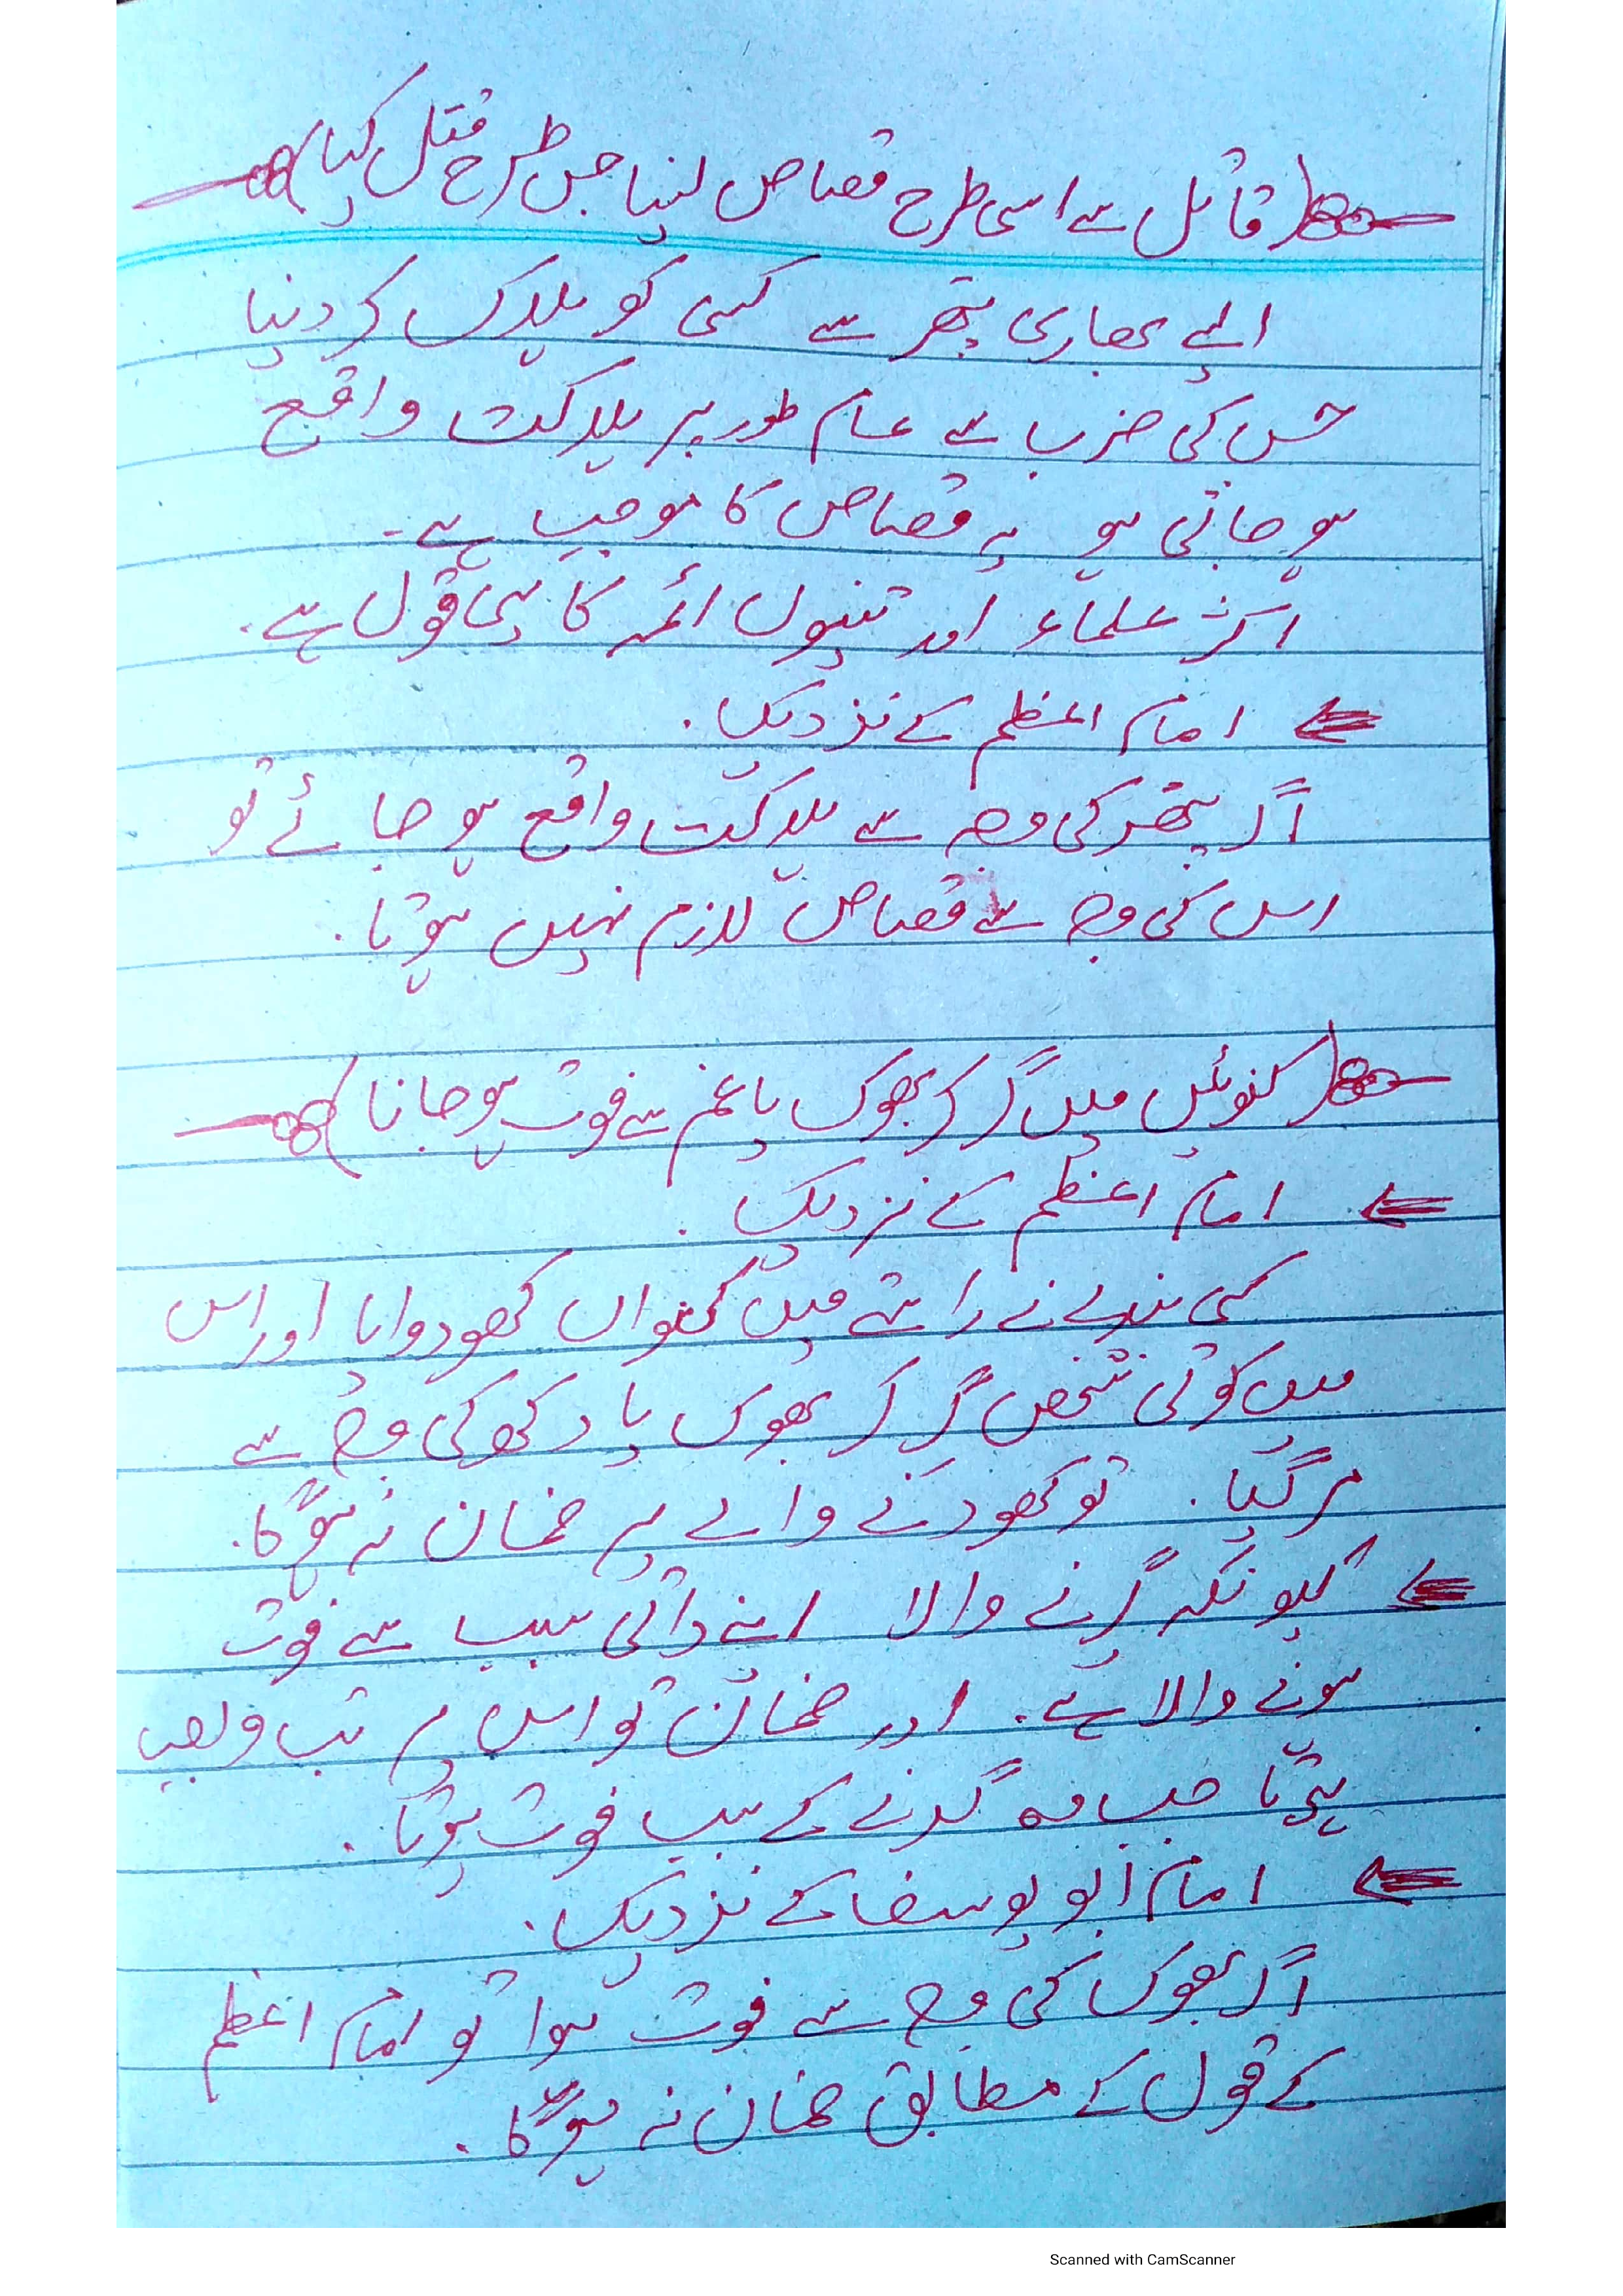 (قاتل سے اسی طرح قصاص لینا جس طرح قتل کیا)
ایسے بھاری پتھر سے کسی کو ہلاک کر دینا
جس کی ضرب سے عام طور پر ہلاکت واقع
ہو جاتی ہو یہ قصاص کا موجب ہے۔
اکثر علماء اور تینوں ائمہ کا یہی قول ہے۔
امام اعظم کے نزدیک۔
اگر پتھر کی وجہ سے ہلاکت واقع ہو جائے تو
اس کی وجہ سے قصاص لازم نہیں ہوتا۔
(کنوئیں میں گر کر بھوک یا غم سے فوت ہو جانا)
امام اعظم کے نزدیک۔
کسی بندے نے راستے میں کنواں کھودوایا اور اس
میں کوئی شخص گر کر بھوک یا دکھ کی وجہ سے
مر گیا۔ تو کھودنے والے پر ضمان نہ ہوگا۔
کیونکہ گرنے والا اپنے ذاتی سبب سے فوت
ہونے والا ہے۔ اور ضمان تو اس پر تب واجب
ہوتا جب وہ گرنے کے سبب فوت ہوتا۔
امام ابو یوسف کے نزدیک۔
اگر بھوک کی وجہ سے فوت ہوا تو امام اعظم
کے قول کے مطابق ضمان نہ ہوگا۔
Scanned with CamScanner